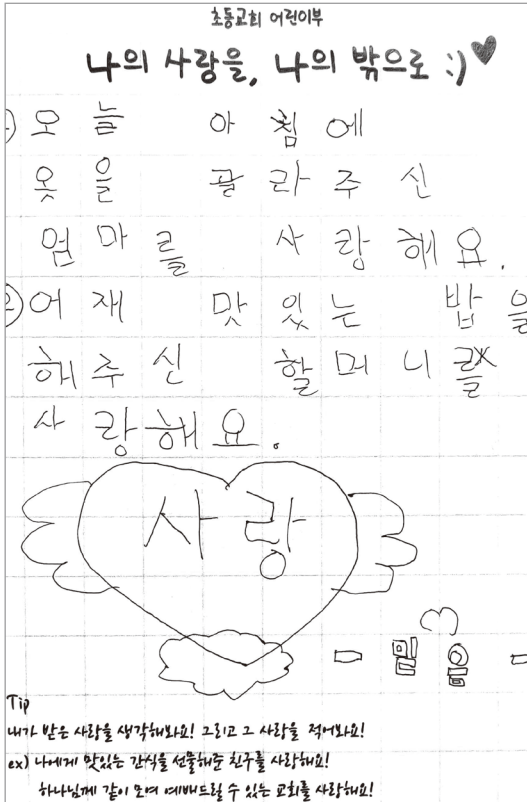 초동교회 어린이부
나의 사랑을, 나의 밖으로 :)♥
1) 오늘 아침에
옷을 골라주신
엄마를 사랑해요.
2) 어재 맛있는 밥을
해주신 할머니를
사랑해요.
사랑
- 믿음 -
Tip
내가 받은 사랑을 생각해봐요! 그리고 그 사랑을 적어봐요!
ex) 나에게 맛있는 간식을 선물해준 친구를 사랑해요!
하나님께 같이 모여 예배드릴 수 있는 교회를 사랑해요!